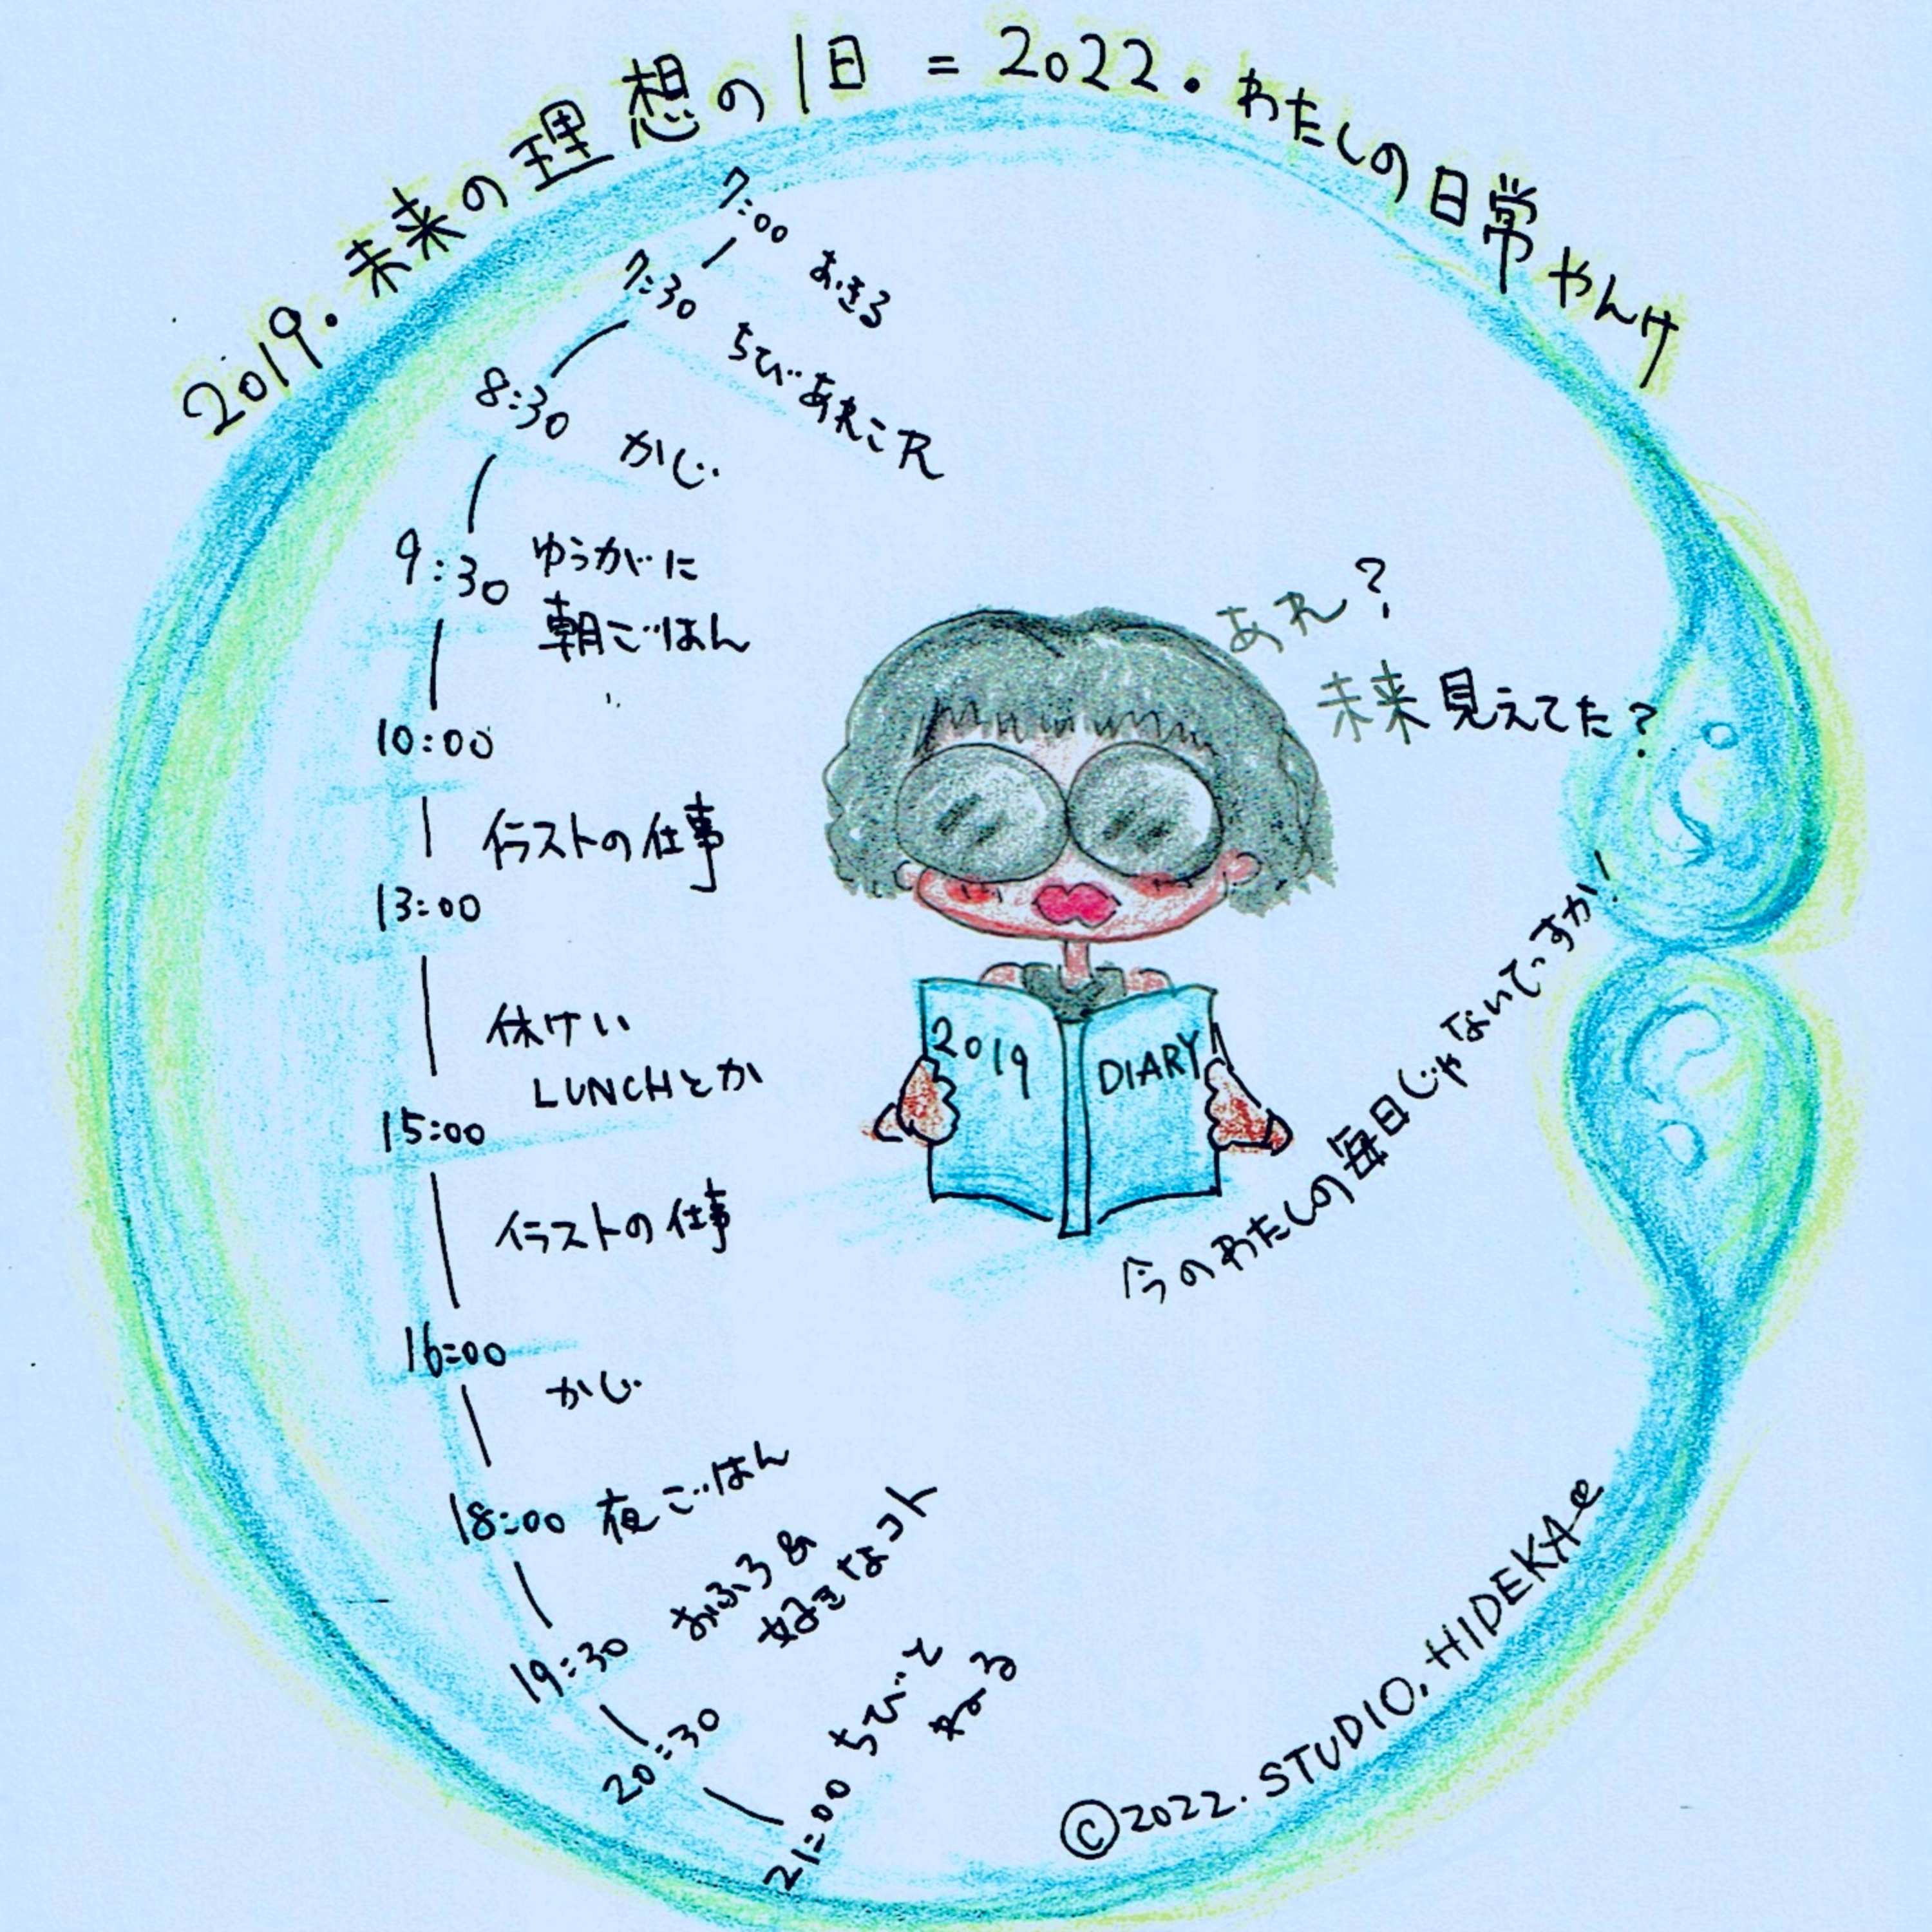 2019.未来の理想の1日 = 2022.わたしの日常やんけ
7:00 おきる
7:30 ちびあれこれ
8:30 かじ
9:30 ゆうがに
朝ごはん
10:00
イラストの仕事
13:00
休けい
LUNCHとか
15:00
イラストの仕事
16:00
かじ
18:00 夜ごはん
19:30 おふろ&
好きなコト
20:30 ちびと
ねる
21:00
あれ?
未来見えてた?
2019 DIARY
今のわたしの毎日じゃないてっすか!
©2022. STUDIO. HIDEKA-e